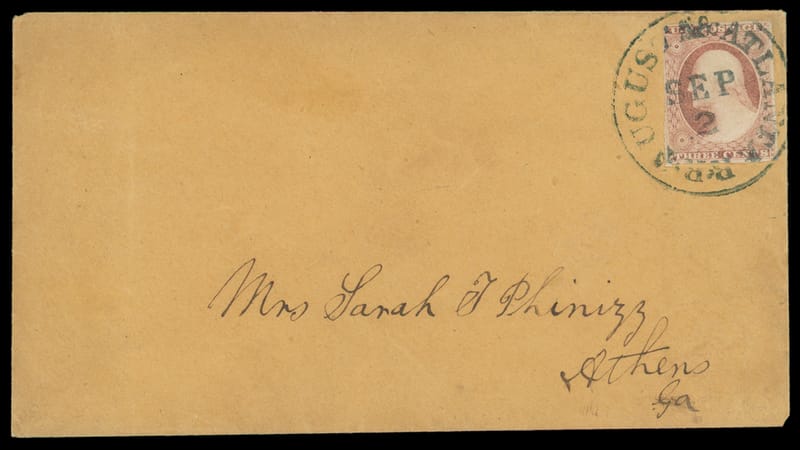 AUGUSTA & ATLANTA R.R.
SEP
2
THREE CENTS
Mrs Sarah Phinizy
Athens
Ga